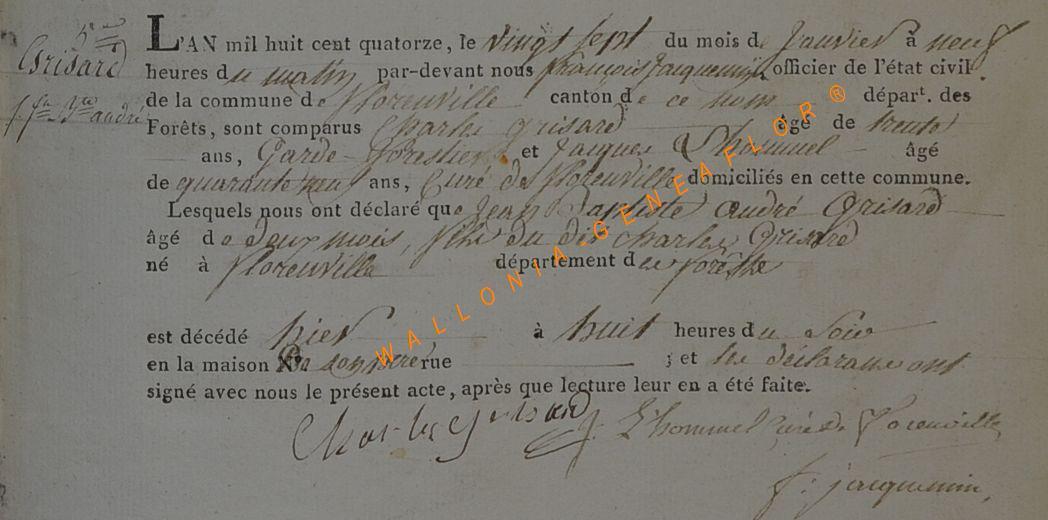 5e
Grisard
L'AN mil huit cent quatorze, le vingt sept du mois de Janvier à neuf
heures du matin par-devant nous françois Jacquemin officier de l'état civil
de la commune de florenville canton de ce nom départ. des
Forêts, sont comparus Charles Grisard âgé de trente
ans, Garde-forestier et Jacques Lhommel âgé
de quarante neuf ans, Curé de florenville domiciliés en cette commune.
Lesquels nous ont déclaré que Jean Baptiste andré Grisard
âgé de deux mois, fils du dit Charles Grisard
né à florenville département des forêts
est décédé hier à huit heures du Soir
en la maison de son père rue ; et les déclarans ont
signé avec nous le présent acte, après que lecture leur en a été faite.
Charles Grisard J. Lhommel Curé de florenville
f. jacquemin,
WALLONIA GENEAFLOR ®